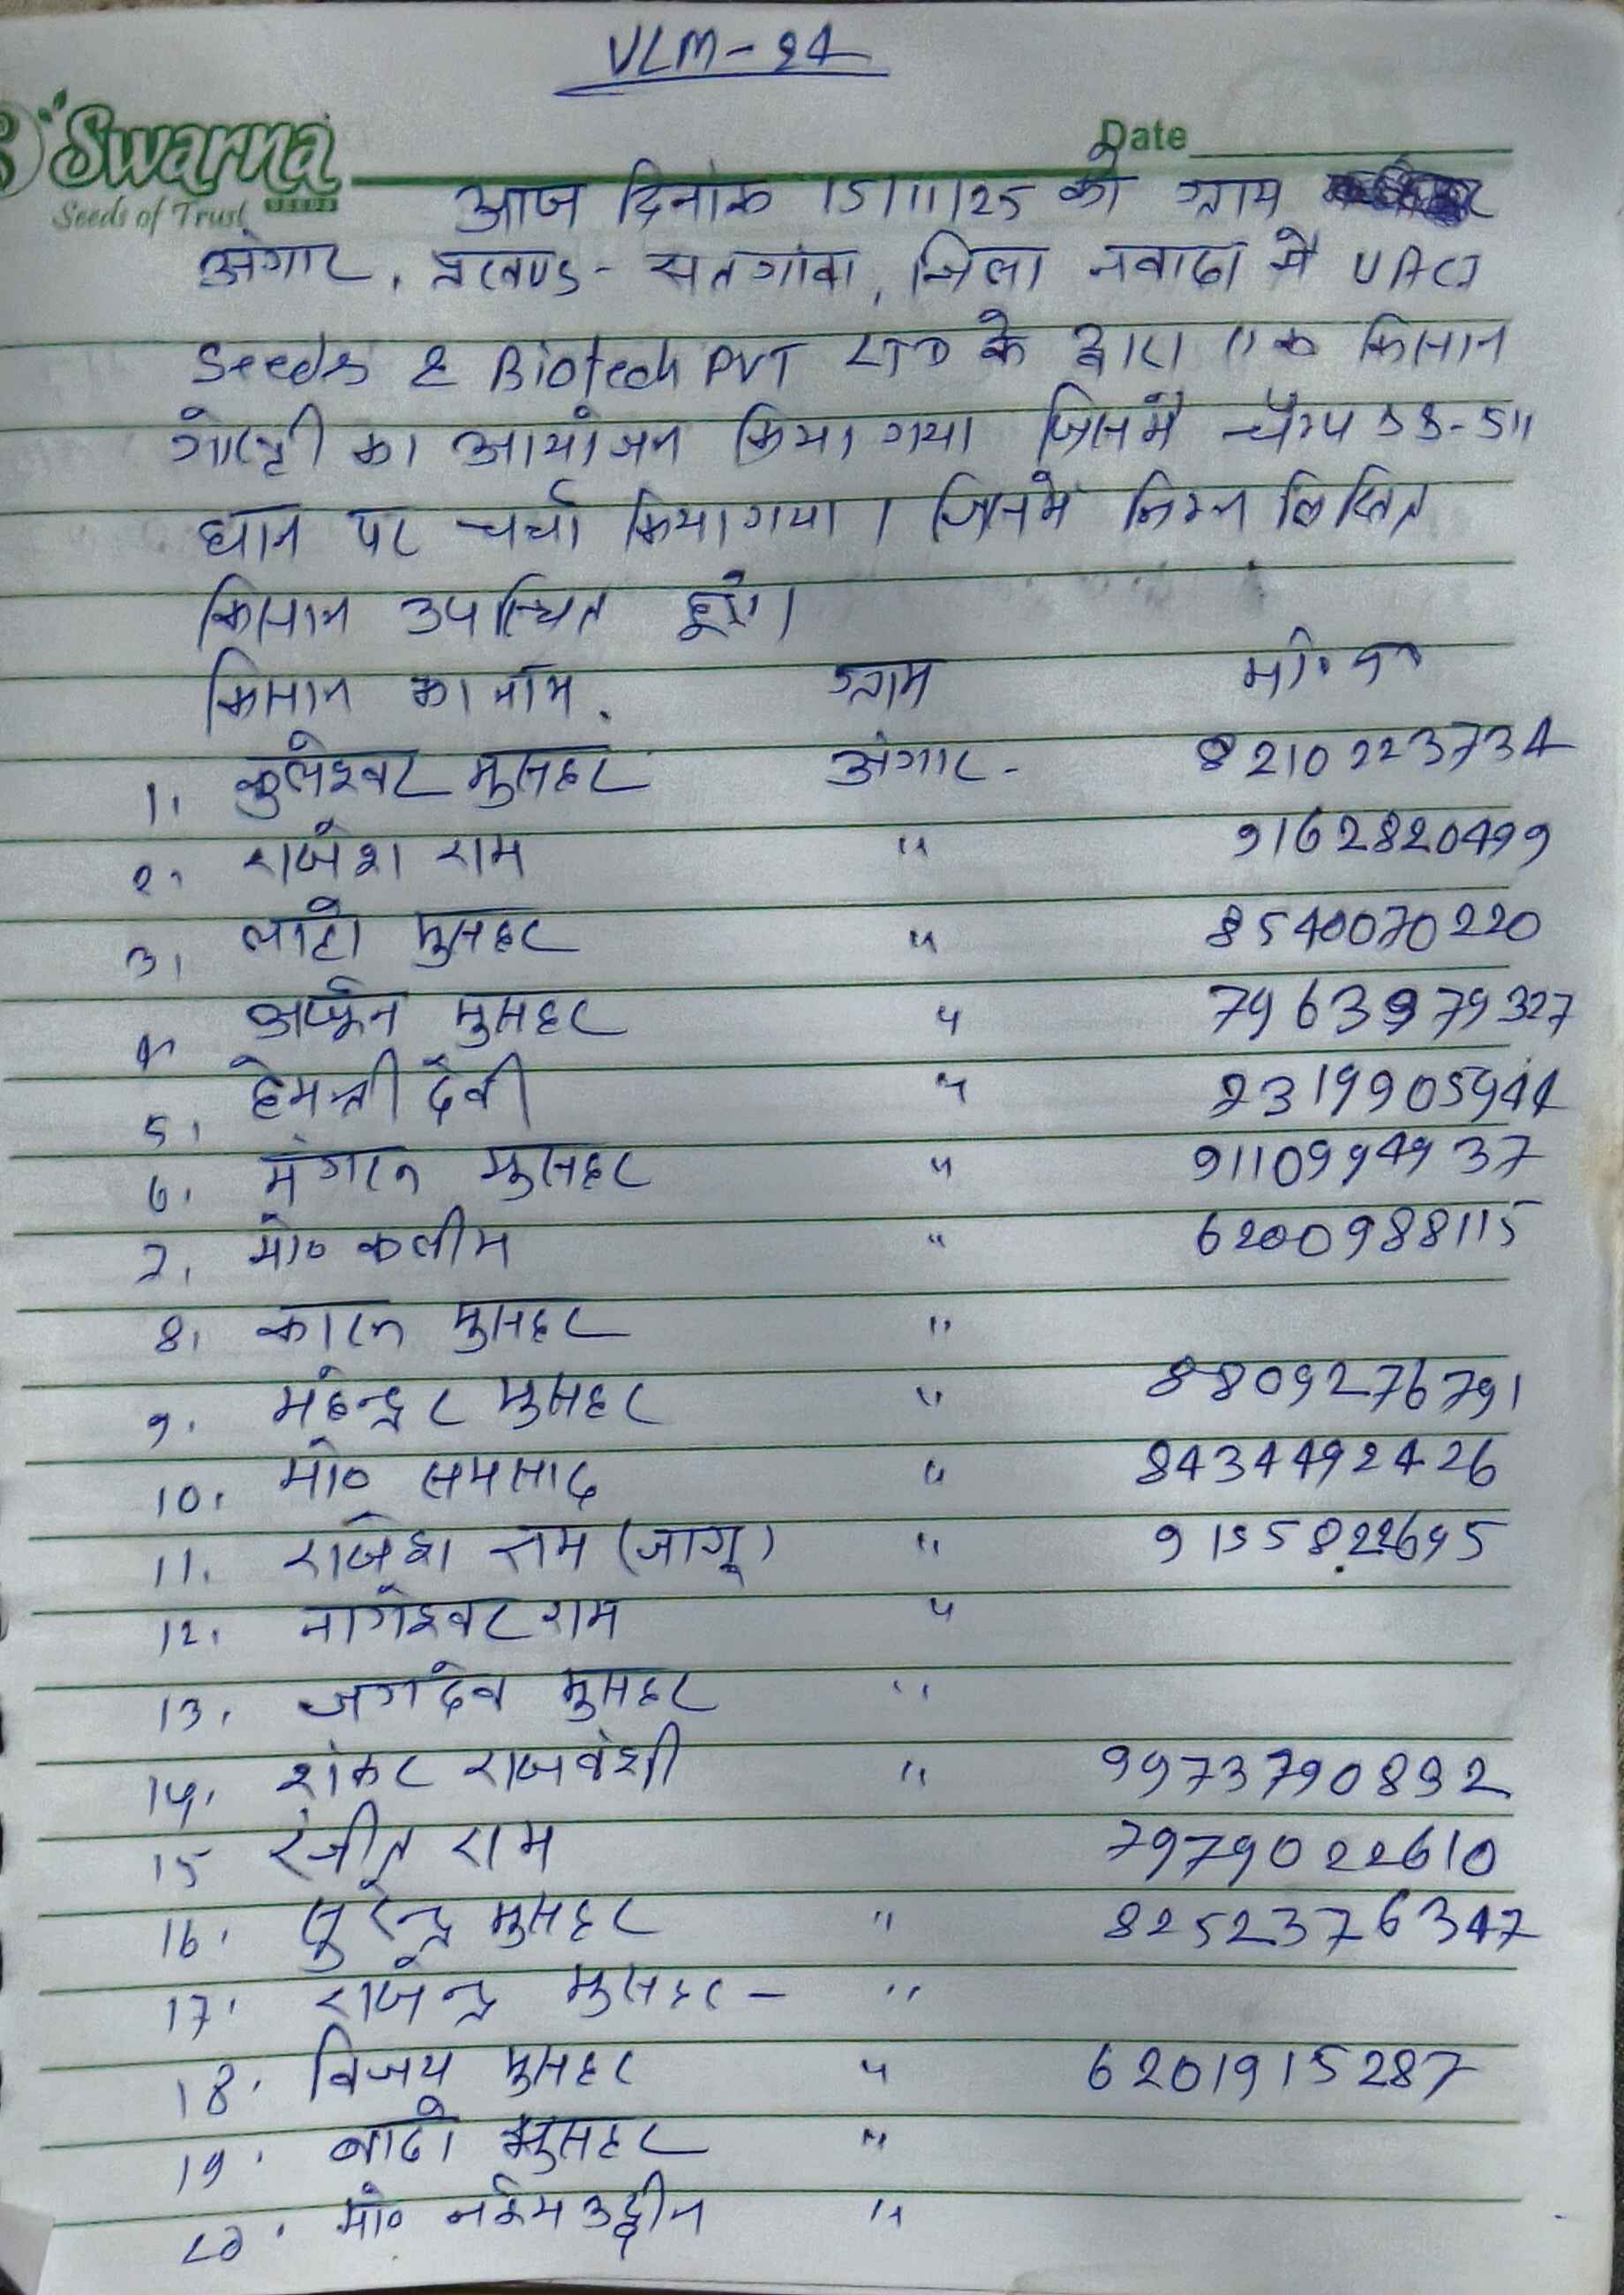 VLM-24
Swarna
Seeds of Trust
Date
आज दिनांक 15/11/25 को ग्राम
अंगार, प्रखण्ड - सतगांवा, जिला नवादा में
Seeds & Biotech PVT LTD के द्वारा एक किसान
गोष्टी का आयोजन किया गया जिसमें चैम्प 53-511
धान पर चर्चा किया गया। जिसमें निम्न लिखित
किसान उपस्थित हुए।
किसान का नाम. ग्राम मो. न०
1. कुलेश्वर मुसहर अंगार - 8210223734
2. राजेश राम " 9162820499
3. लाटो मुसहर " 8540070220
4. अर्जुन मुसहर " 7963979327
5. हेमन्ती देवी " 2319905944
6. मंगरू मुसहर " 9110994937
7. मो० कलीम " 6200988115
8. कारू मुसहर "
9. महेन्द्रर मुसहर " 8809276791
10. मो० समसाद " 8434492426
11. राजेश राम (जागू) " 9155822695
12. नागेश्वर राम "
13. जगदेव मुसहर "
14. शंकर राजवंशी " 9973790832
15 रंजीत राम 7979022610
16. सुरेन्द्र मुसहर " 8252376347
17. राजेन्द्र मुसहर - "
18. विजय मुसहर " 6201915287
19. बाढो मुसहर "
20. मो० नईमउद्दीन "